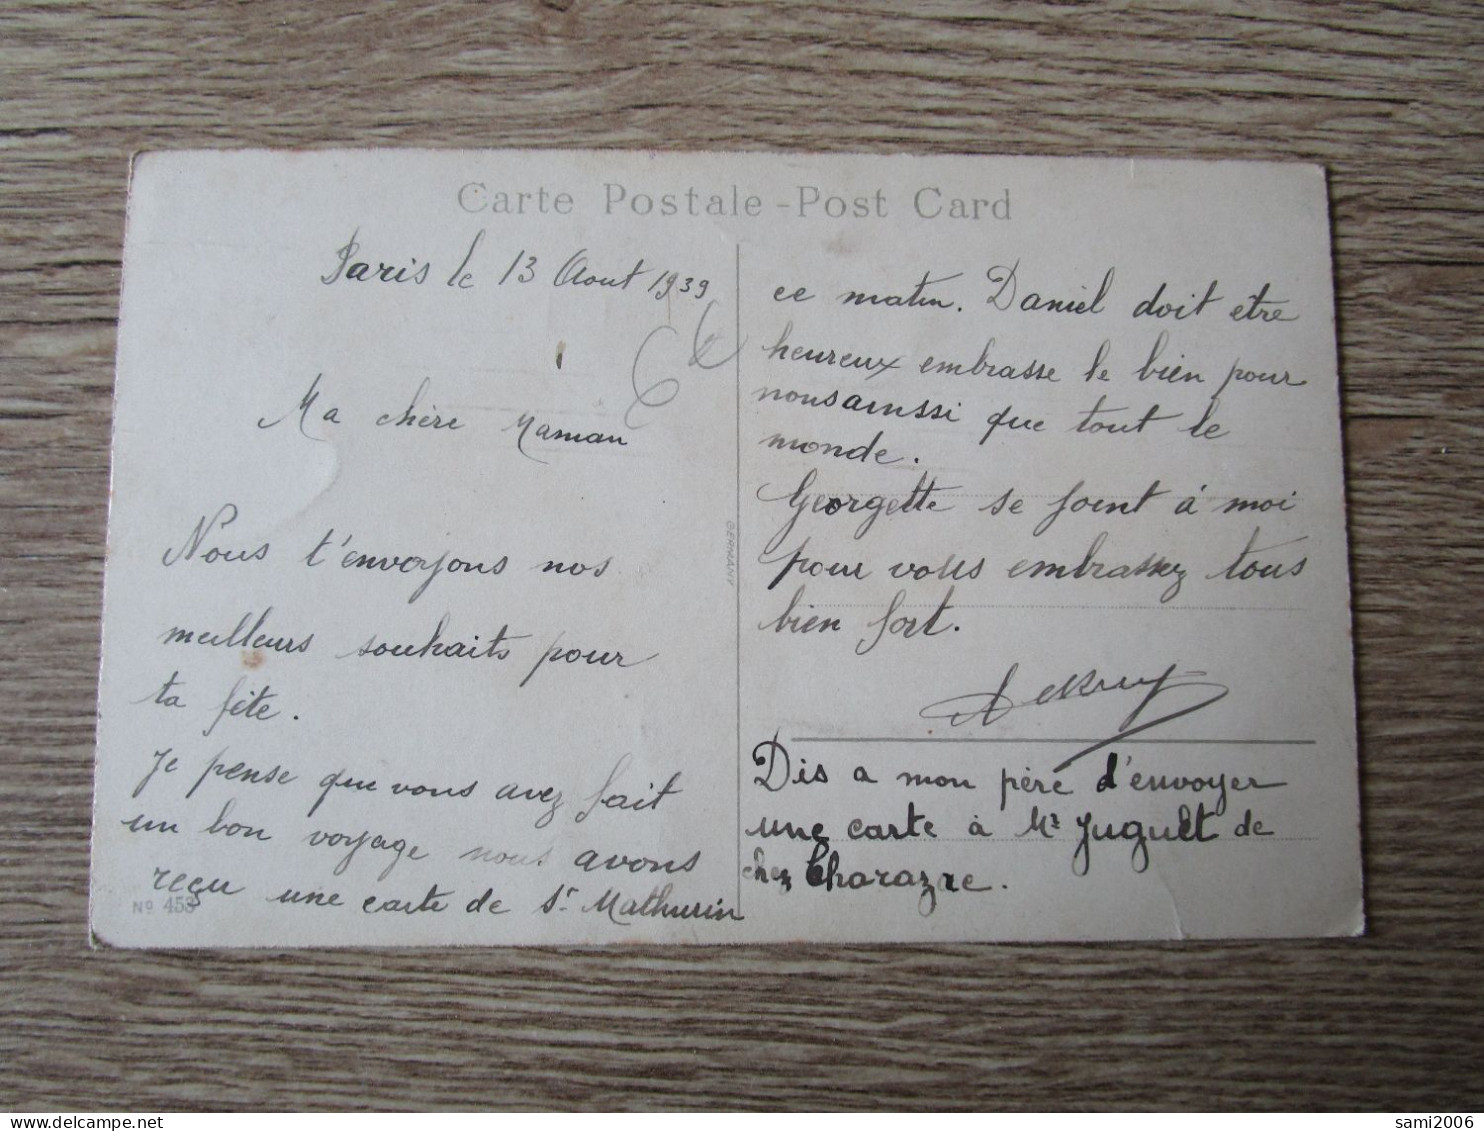 Carte Postale - Post Card
Paris le 13 Aout 1939
Ma chère Maman
Nous t'envoyons nos
meilleurs souhaits pour
ta fête.
Je pense que vous avez fait
un bon voyage nous avons
reçu une carte de St Mathurin
No 453
GERMANY
ce matin. Daniel doit etre
heureux embrasse le bien pour
nous ainssi que tout le
monde.
Georgette se joint à moi
pour vous embrassez tous
bien fort.
Dis a mon père d'envoyer
une carte à Mr Juguet de
chez Charazre.
sami2006